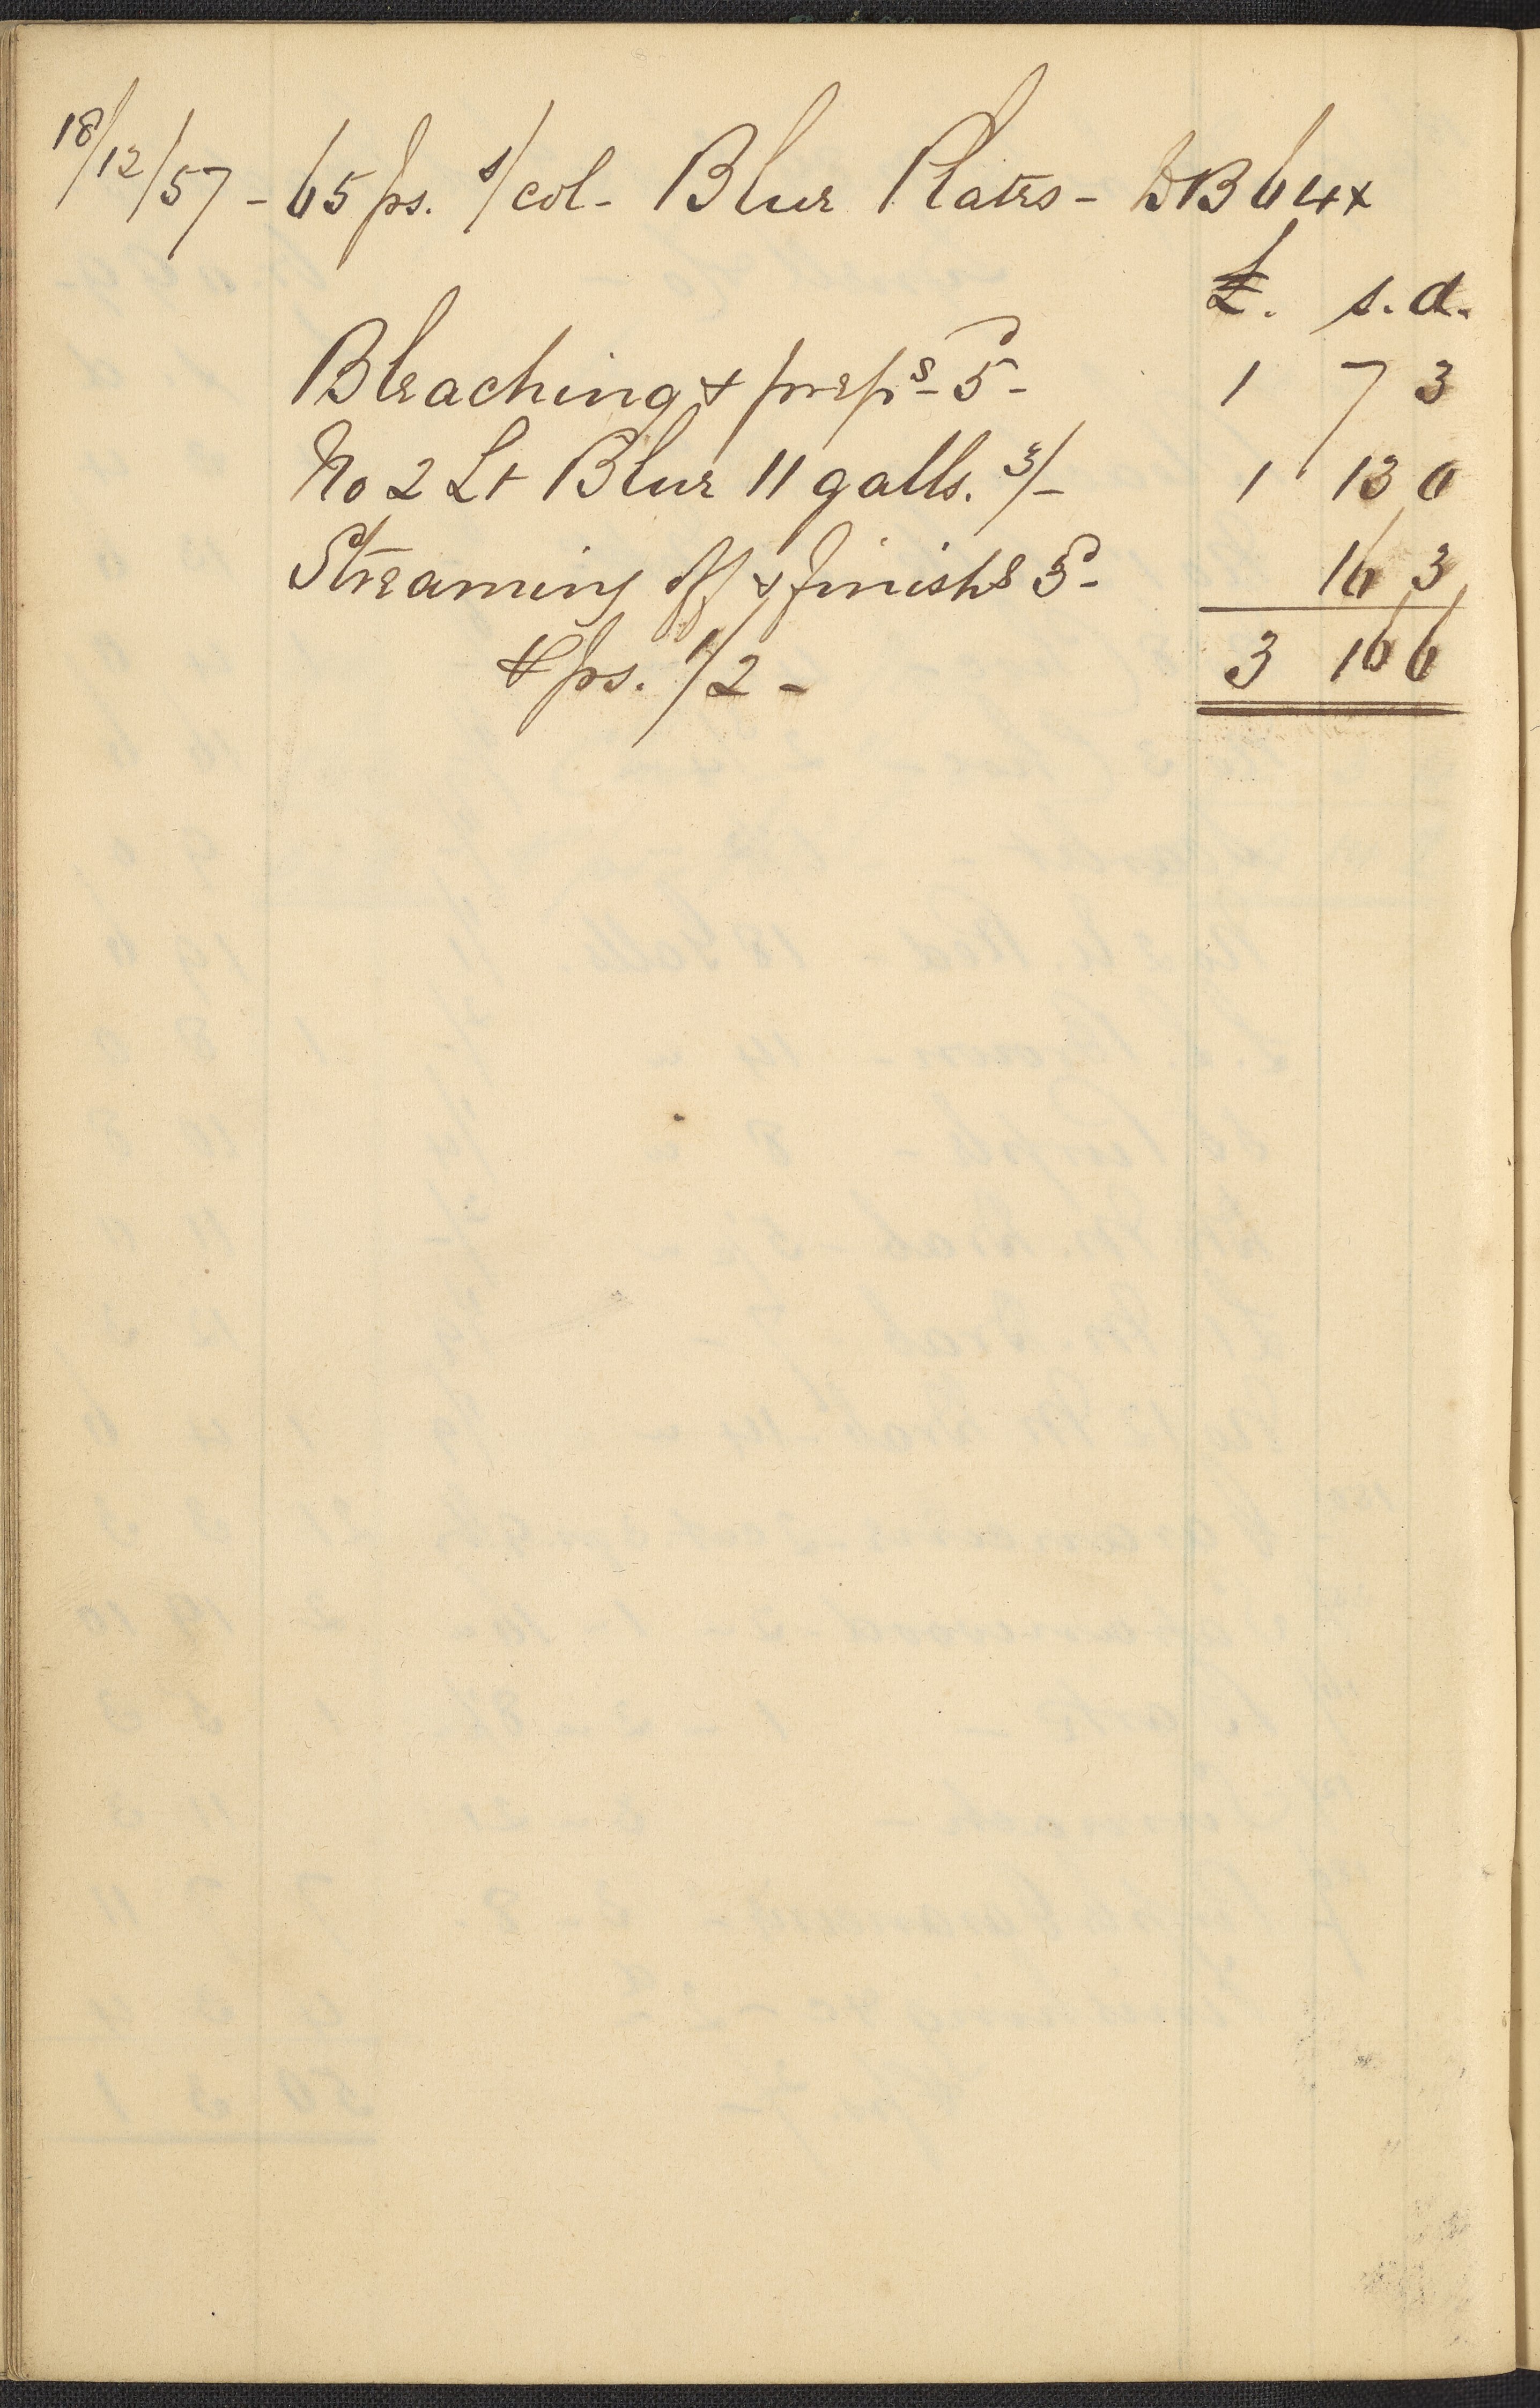 18/12/57 - 65 ps. s/col - Blue Plates - DB 64x
£. s. d.
Bleaching & preps - 5d - 1 7 3
No 2 Lt Blue 11 galls. 3/- 1 13 0
Streaming off & finishs 3d - 16 3
3 16 6
℔ ps. 1/2 -